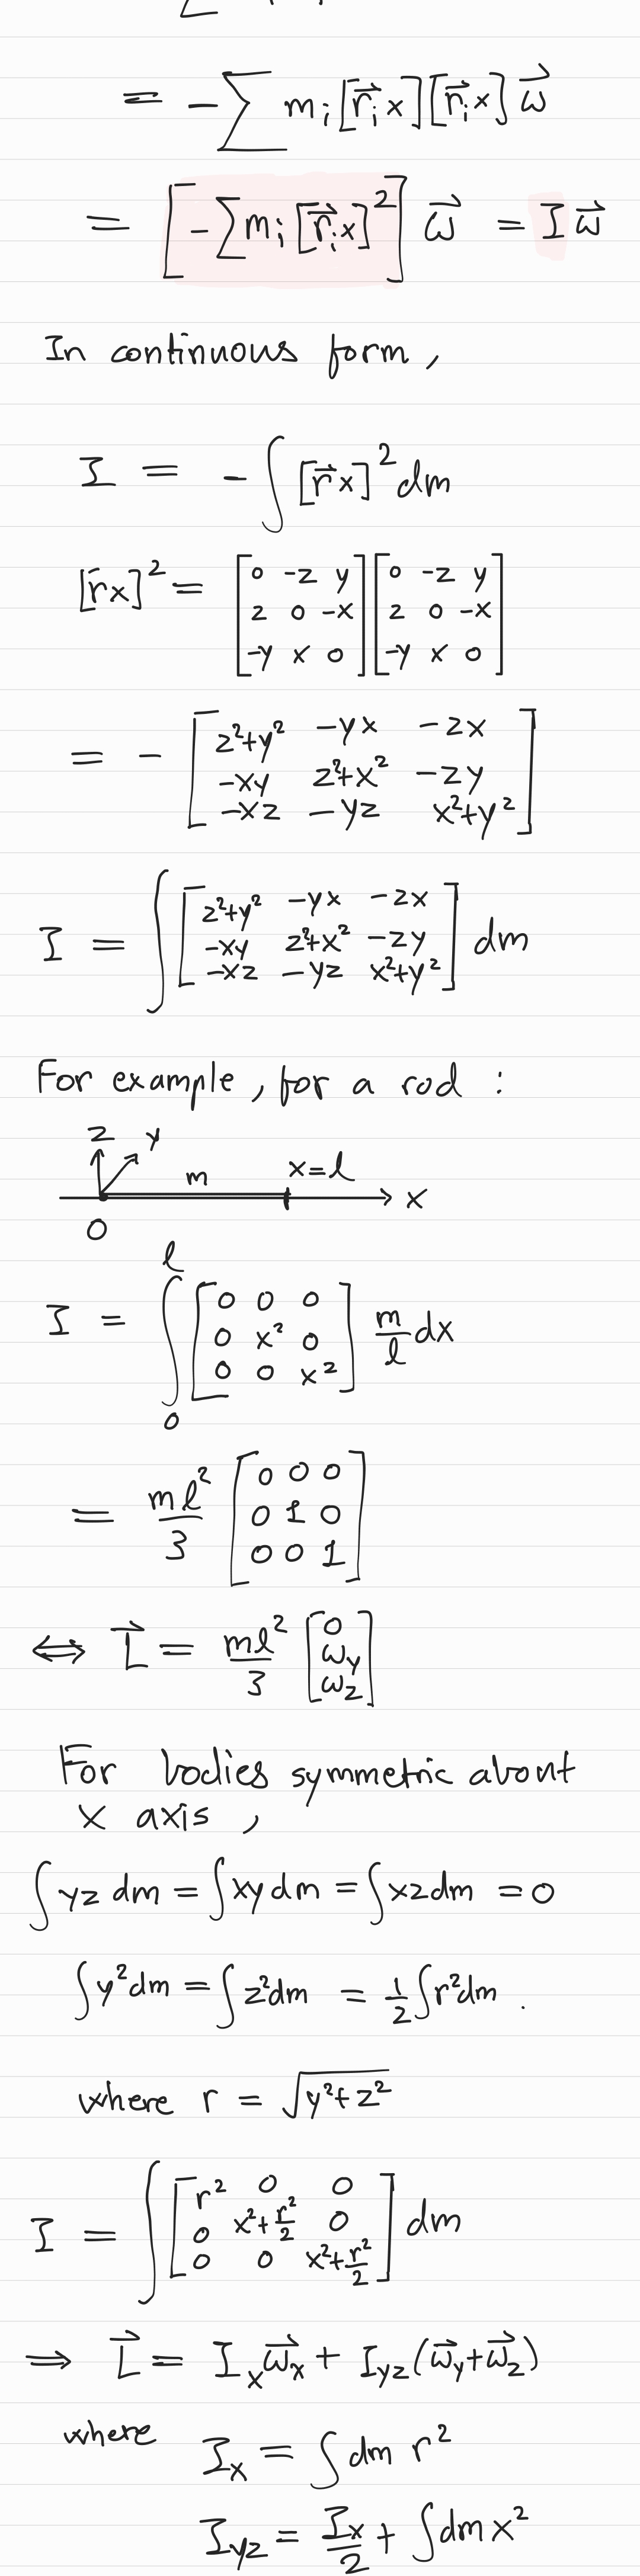 = - ∑ mᵢ [r⃗ᵢ×] [r⃗ᵢ×] ω⃗
= [ - ∑ mᵢ [r⃗ᵢ×]² ] ω⃗ = I ω⃗
In continuous form,
I = - ∫ [r⃗×]² dm
[r⃗×]² = [0 -z y; z 0 -x; -y x 0] [0 -z y; z 0 -x; -y x 0]
= - [z²+y² -yx -zx; -xy z²+x² -zy; -xz -yz x²+y²]
I = ∫ [z²+y² -yx -zx; -xy z²+x² -zy; -xz -yz x²+y²] dm
For example, for a rod :
z y m x=l x
0
I = ∫₀ˡ [0 0 0; 0 x² 0; 0 0 x²] m/l dx
= ml²/3 [0 0 0; 0 1 0; 0 0 1]
⇔ L⃗ = ml²/3 [0; ωy; ωz]
For bodies symmetric about
x axis,
∫ yz dm = ∫ xy dm = ∫ xz dm = 0
∫ y² dm = ∫ z² dm = 1/2 ∫ r² dm .
where r = √(y²+z²)
I = ∫ [r² 0 0; 0 x²+r²/2 0; 0 0 x²+r²/2] dm
⇒ L⃗ = Iₓ ω⃗ₓ + I_yz (ω⃗_y + ω⃗_z)
where Iₓ = ∫ dm r²
I_yz = Iₓ/2 + ∫ dm x²